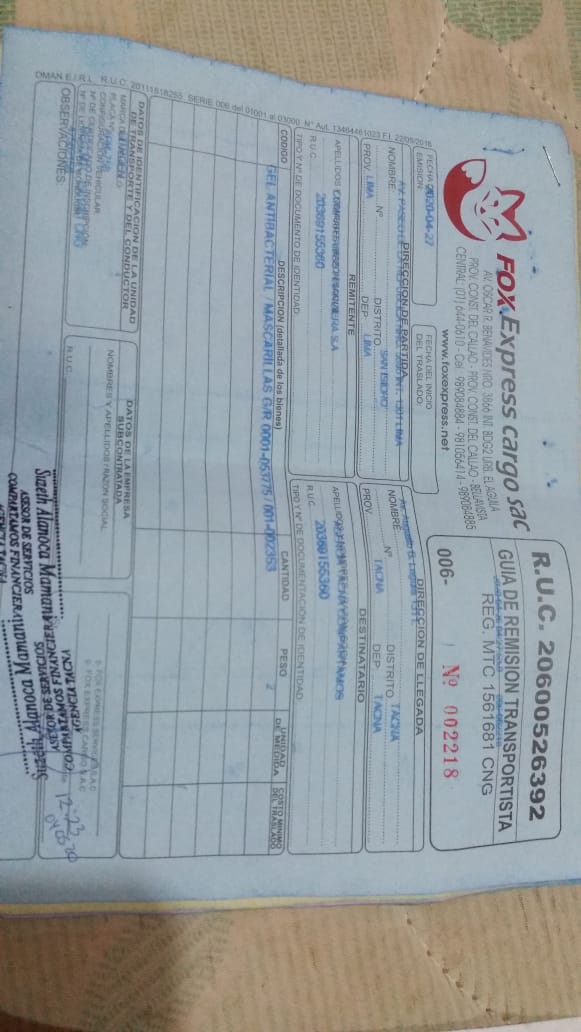 FOX Express cargo sac
AV. OSCAR R. BENAVIDES NRO. 3866 INT. BDG2 URB. EL AGUILA
PROV. CONST. DEL CALLAO - PROV. CONST. DEL CALLAO - BELLAVISTA
CENTRAL: (01) 644-0610 - Cel.: 989084884 - 981056414 - 989084885
www.foxexpress.net
R.U.C. 20600526392
GUIA DE REMISIÓN TRANSPORTISTA
REG. MTC 1561681 CNG
006- Nº 002218
FECHA DE EMISIÓN: 2020-04-27
FECHA DEL INICIO DEL TRASLADO:
DIRECCION DE PARTIDA
AV. PASEO INT. 1301 LIMA
NOMBRE Nº DISTRITO SAN ISIDRO
PROV. LIMA DEP. LIMA
DIRECCION DE LLEGADA
NOMBRE Nº DISTRITO TACNA
PROV. TACNA DEP. TACNA
REMITENTE
APELLIDOS FINANCIERA S.A
R.U.C. 20369155360
TIPO Y Nº DE DOCUMENTO DE IDENTIDAD:
DESTINATARIO
COMPARTAMOS
R.U.C. 20369155360
TIPO Y Nº DE DOCUMENTACIÓN DE IDENTIDAD:
CODIGO DESCRIPCION (detallada de los bienes) CANTIDAD PESO UNIDAD DE MEDIDA COSTO MINIMO DEL TRASLADO
GEL ANTIBACTERIAL / MASCARILLAS G/R 0001-053775 / 001-002353 2
DATOS DE IDENTIFICACION DE LA UNIDAD DE TRANSPORTE Y DEL CONDUCTOR
PLACA Nº
CONFIGURACION VEHICULAR
OBSERVACIONES:
DATOS DE LA EMPRESA SUBCONTRATADA
NOMBRES Y APELLIDOS / RAZON SOCIAL
R.U.C.
FOX EXPRESS SERVICE S.A.C
FOX EXPRESS CARGO S.A.C
12:23
Siazeth Alanoca Mamani
ASESOR DE SERVICIOS
COMPARTAMOS FINANCIERA
AGENCIA TACNA
Siazeth Alanoca Mamani
ASESOR DE SERVICIOS
COMPARTAMOS FINANCIERA
AGENCIA TACNA
R.U.C. 20111518255 SERIE 006 del 01001 al 03000 Nº Aut. 13464461023 F.I. 22/05/2018